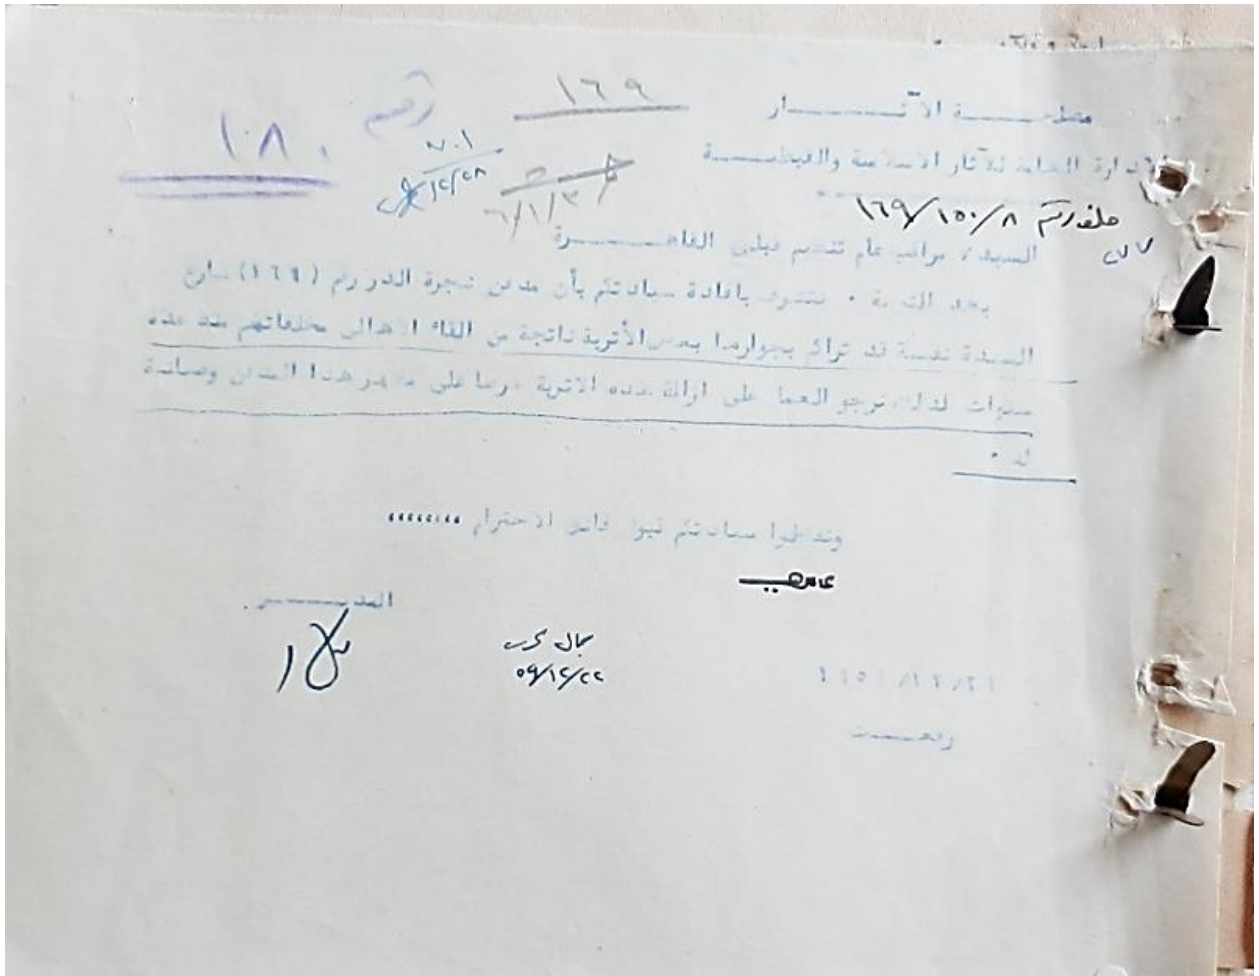 ١٦٩
رقم ١٨٠
مصلحـــة الآثـــــار
الادارة العامة للآثار الاسلامية والقبطيـــة
٧٠١
٥٩/١٢/٢٨
٦/١/٣
ملف رقم ١٦٩/١٥٠/٨
السيد / مراقب عام تنظيم قبلى القاهـــــرة
بعد التحية ٠ نتشرف بافادة سيادتكم بأن مدفن شجرة الدر رقم (١٦٩) شارع
السيدة نفيسة قد تراكم بجوارها بعض الأتربة ناتجة من القاء الاهالى مخلفاتهم منذ عدة
سنوات لذلك نرجو العمل على ازالة هذه الاتربة حرصا على مظهر هذا المدفن وصيانة
له ٠
وتفضلوا سيادتكم قبول فائق الاحترام ،،،،،،،،
المديـــــر
جمال
٥٩/١٢/٢٢
١٩٥٩/١٢/٢١
رفعـــت